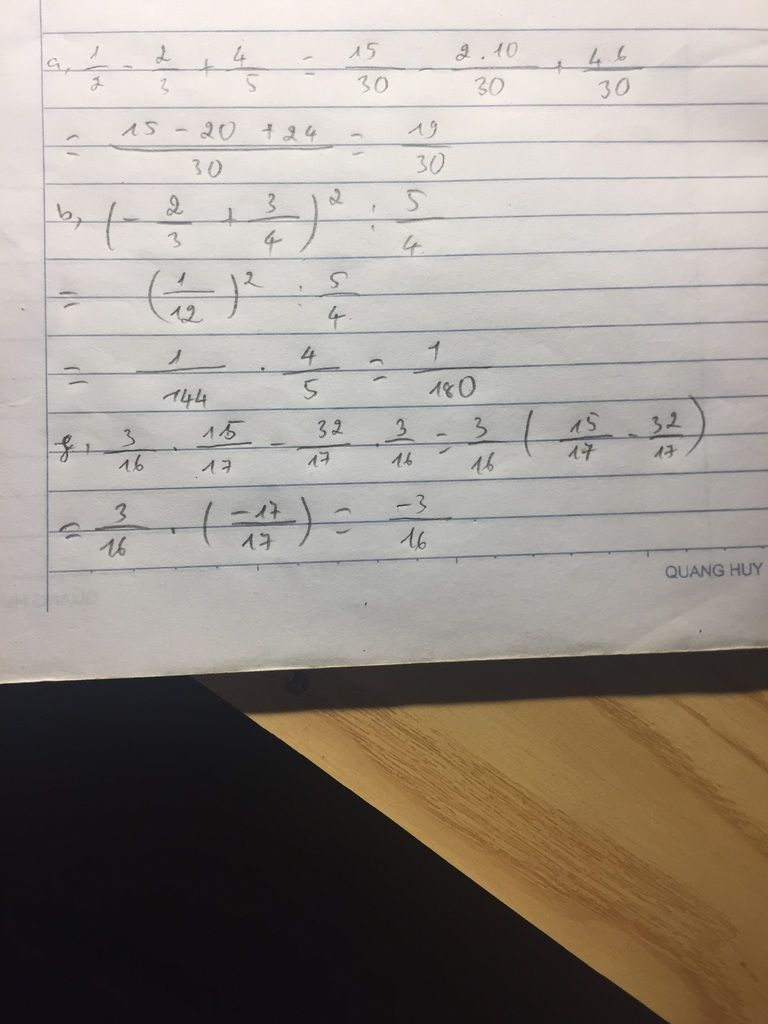 a, 1/2 - 2/3 + 4/5 = 15/30 - 2.10/30 + 4.6/30
= (15 - 20 + 24)/30 = 19/30
b, (- 2/3 + 3/4)² : 5/4
= (1/12)² : 5/4
= 1/144 . 4/5 = 1/180
g, 3/16 . 15/17 - 32/17 . 3/16 = 3/16 (15/17 - 32/17)
= 3/16 . (-17/17) = -3/16
QUANG HUY